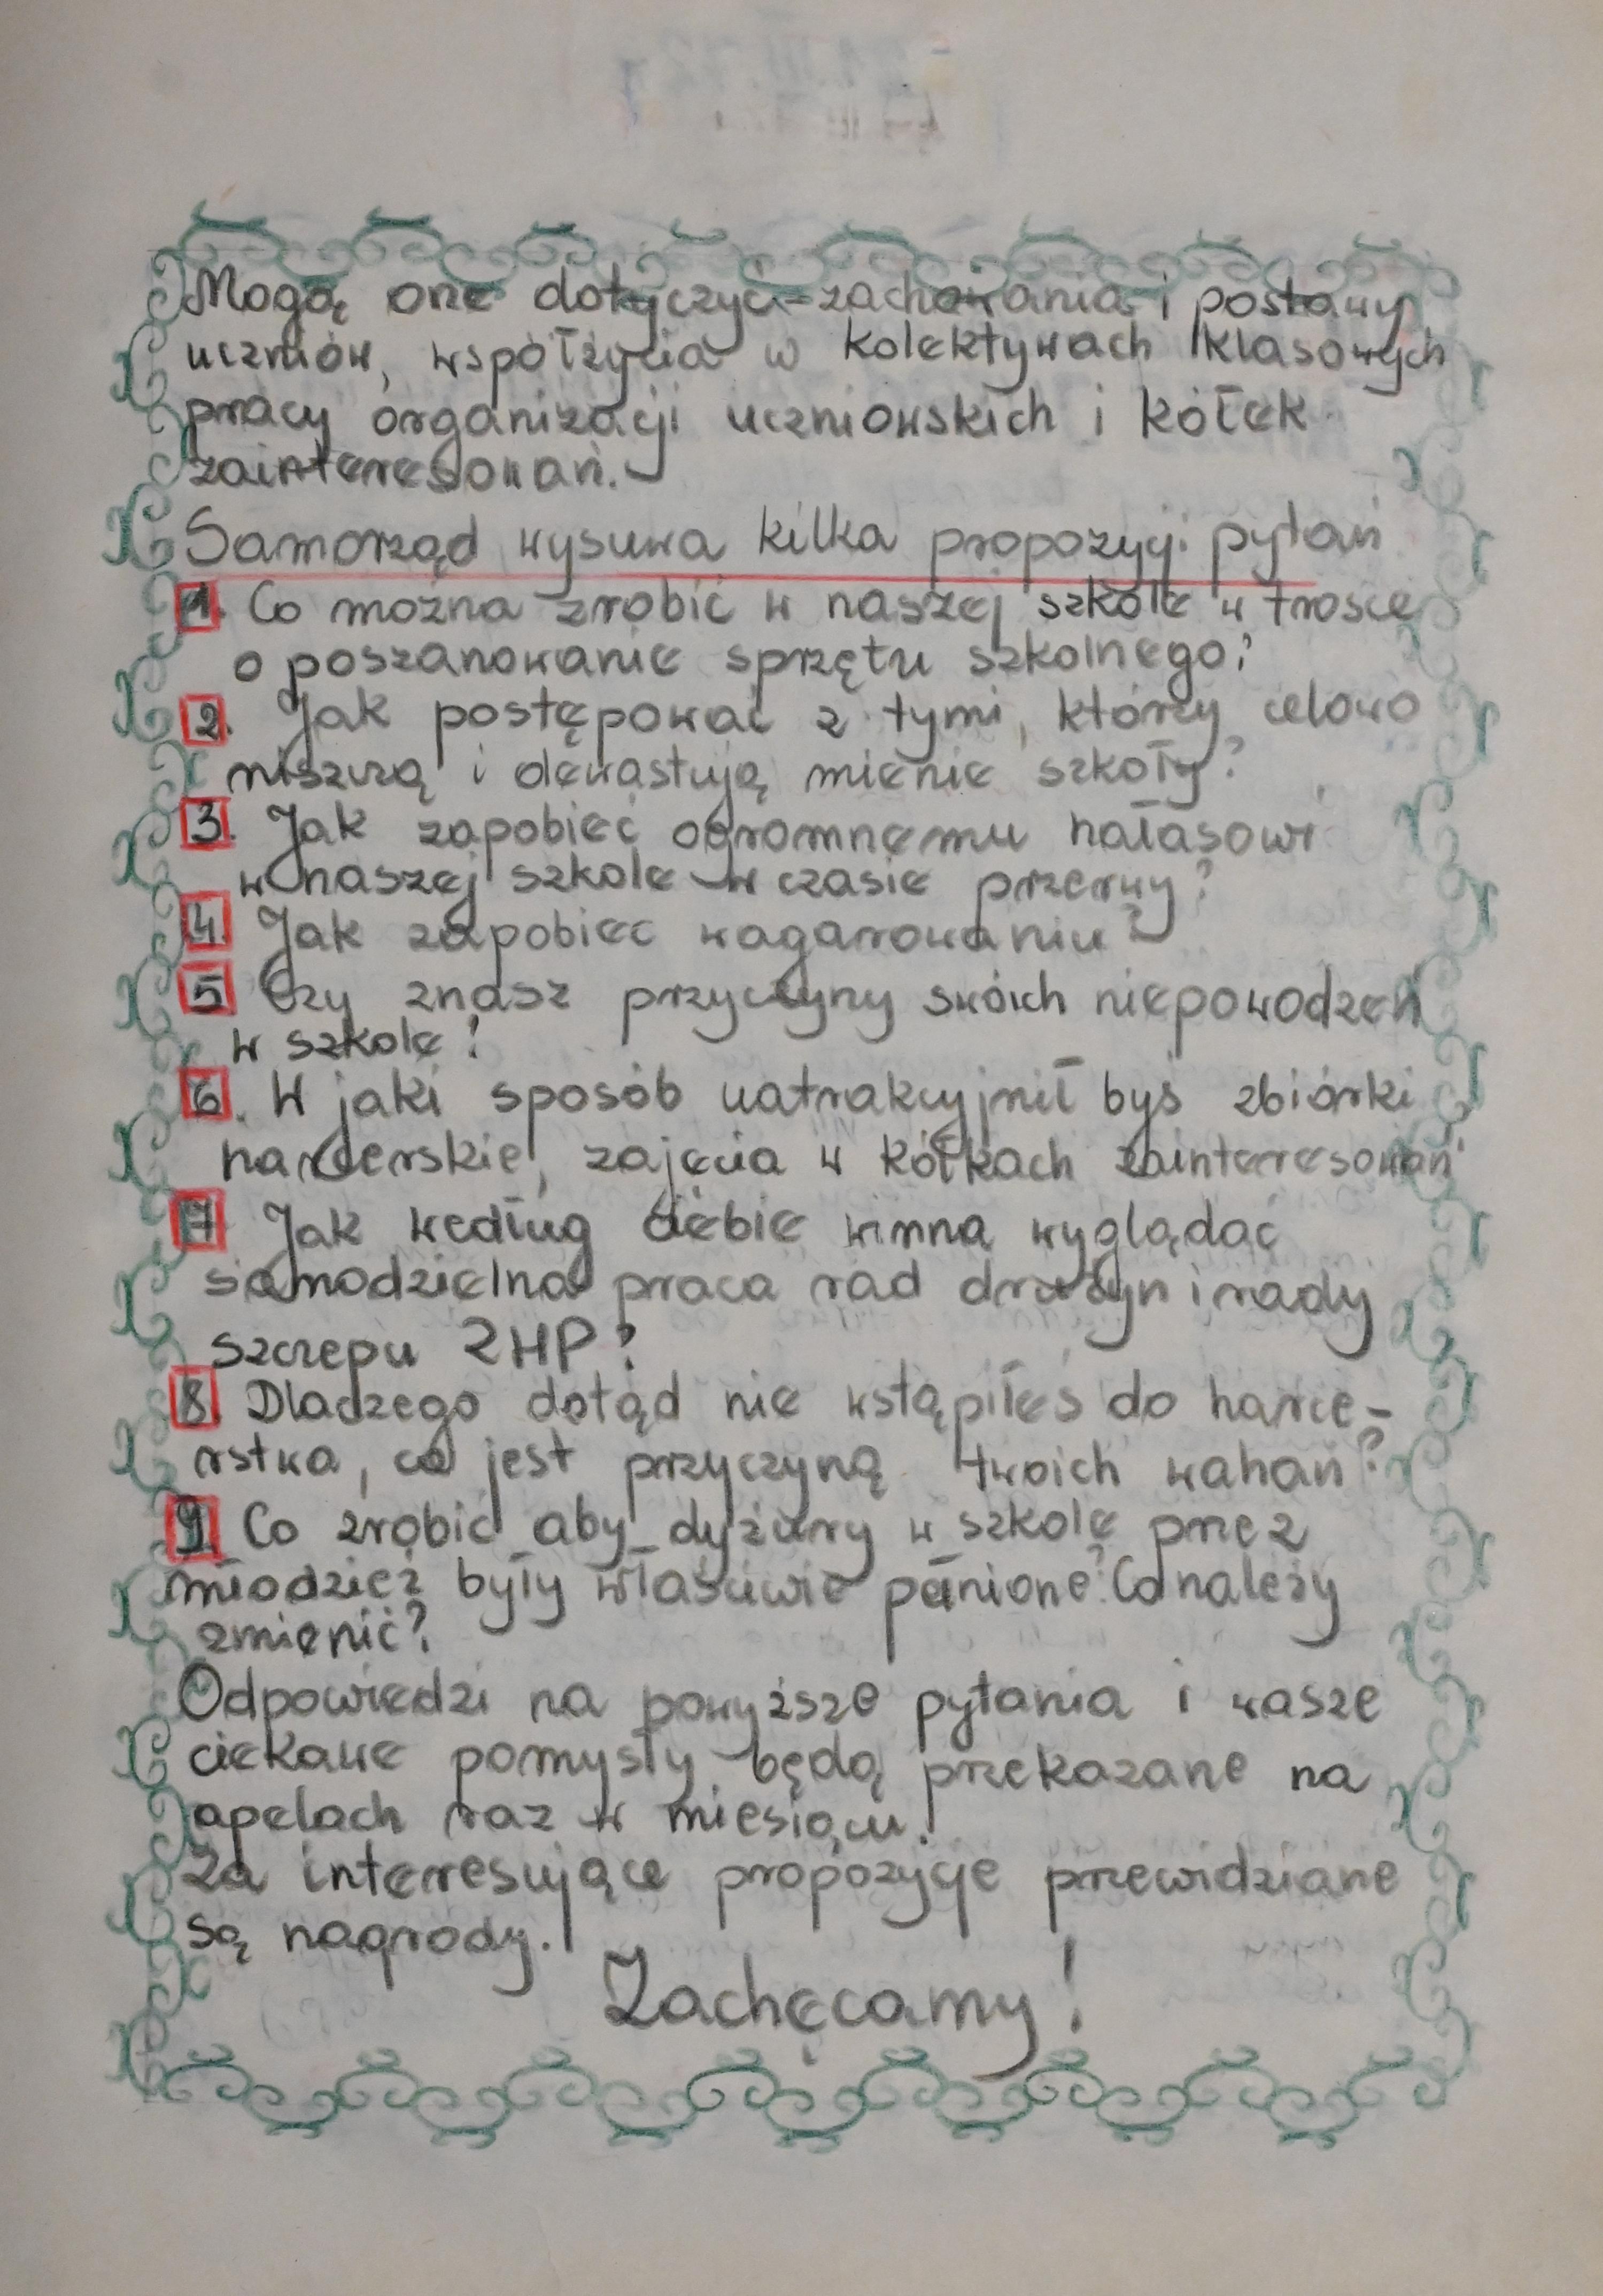 Mogą one dotyczyć - zachowania i postawy
uczniów, współżycia w kolektywach klasowych
pracy organizacji uczniowskich i kółek
zainteresowań.
Samorząd wysuwa kilka propozycji pytań
1. Co można zrobić w naszej szkole w trosce
o poszanowanie sprzętu szkolnego?
2. Jak postępować z tymi, którzy celowo
niszczą i dewastują mienie szkoły?
3. Jak zapobiec ogromnemu hałasowi
w naszej szkole w czasie przerwy?
4. Jak zapobiec wagarowaniu?
5 Czy znasz przyczyny swoich niepowodzeń
w szkole?
6. W jaki sposób uatrakcyjnił byś zbiórki
harcerskie, zajęcia w kółkach zainteresowań
7 Jak według ciebie winna wyglądać
samodzielna praca rad drużyn i rady
szczepu ZHP?
8. Dlaczego dotąd nie wstąpiłeś do harce-
rstwa, co jest przyczyną twoich wahań?
9. Co zrobić aby dyżury w szkole prez
młodzież były właściwie pełnione? Co należy
zmienić?
Odpowiedzi na powyższe pytania i wasze
ciekawe pomysły będą przekazane na
apelach raz w miesiącu.
Za interesujące propozycje przewidziane
są nagrody.
Zachęcamy!